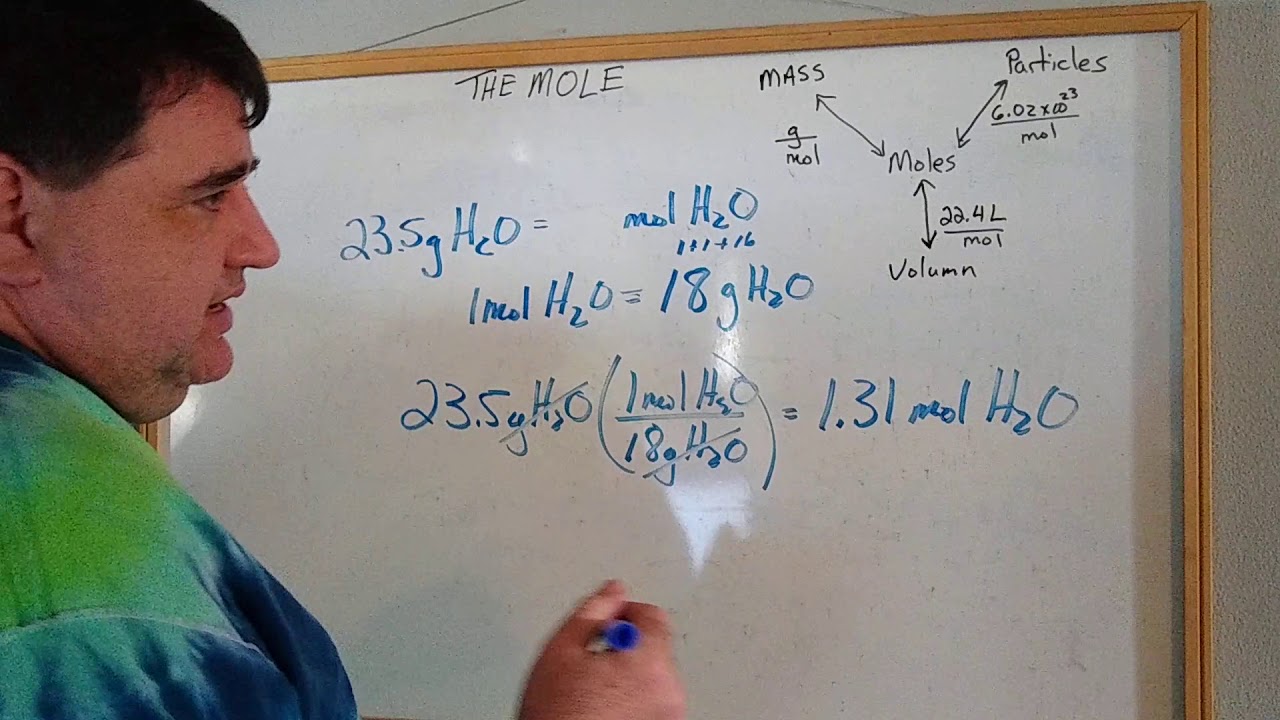 THE MOLE
MASS
Particles
g
mol
6.02x10²³
mol
Moles
22.4L
mol
Volumn
23.5g H₂O = mol H₂O
1+1+16
1mol H₂O = 18g H₂O
23.5g H₂O (1mol H₂O / 18g H₂O) = 1.31 mol H₂O